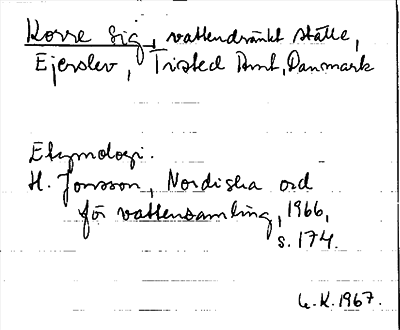 Korre Sig, vattendränkt ställe,
Ejerslev, Tisted Amt, Danmark
Etymologi.
H. Jonsson, Nordiska ord
för vattensamling, 1966,
s. 174.
L.K. 1967.